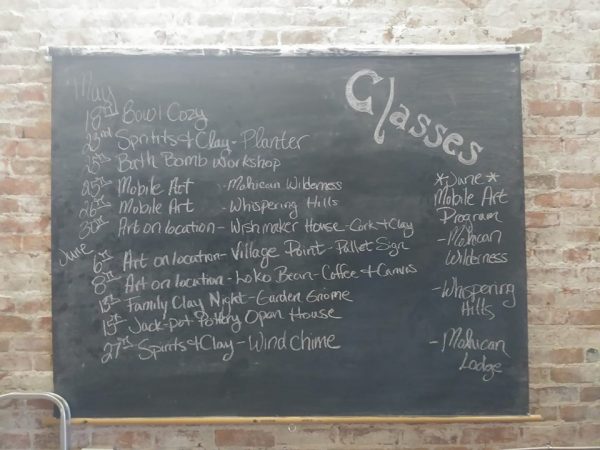 Classes
May
18th Bowl Cozy
23rd Spirits & Clay - Planter
25th Bath Bomb Workshop
25th Mobile Art - Mohican Wilderness
26th Mobile Art - Whispering Hills
30th Art on location - Wishmaker House - Cork & Clay
June
6th Art on location - Village Point - Pallet Sign
8th Art on location - Loko Bean - Coffee & Canvas
13th Family Clay Night - Garden Gnome
15th Jack-Pot Pottery Open House
27th Spirits & Clay - Wind Chime
*June*
Mobile Art
Program
- Mohican
Wilderness
- Whispering
Hills
- Mohican
Lodge